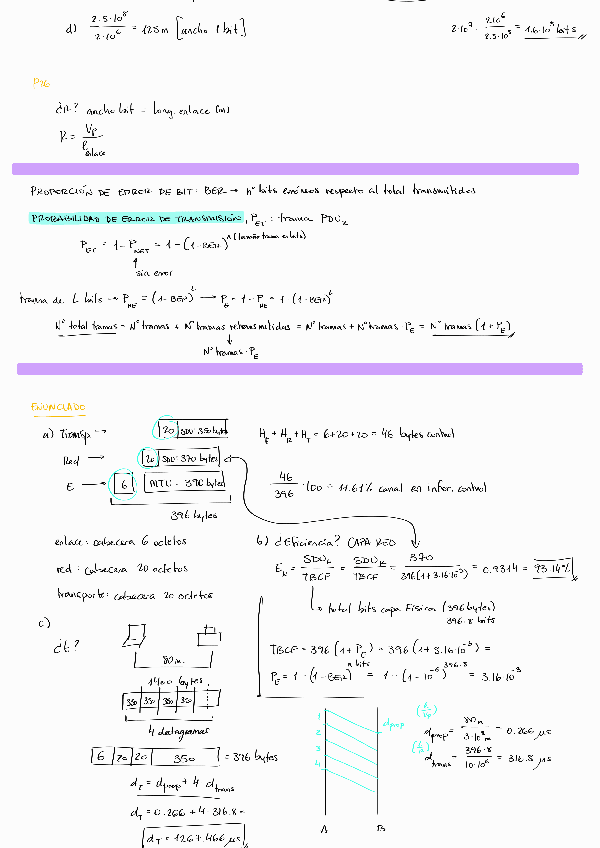 d) 2.5·10⁸ / 2·10⁶ = 125 m [ancho 1 bit]
2·10⁷ · 2·10⁶ / 2.5·10⁸ = 1.6·10⁵ bits
P26
¿R? ancho bit = long. enlace (m)
R = Vp / ℓenlace
PROPORCIÓN DE ERROR DE BIT: BER → nº bits erróneos respecto al total transmitidos
PROBABILIDAD DE ERROR DE TRANSMISIÓN, P_ET: trama PDU₂
P_ET = 1 - P_NET = 1 - (1-BER)^(tamaño trama en bits)
↑
sin error
trama de L bits → P_NE = (1-BER)^L → P_E = 1 - P_NE = 1 - (1-BER)^L
Nº total tramas = Nº tramas + Nº tramas retransmitidas = Nº tramas + Nº tramas · P_E = Nº tramas (1+P_E)
↓
Nº tramas · P_E
ENUNCIADO
a) Transp → 20 SDU 350 bytes
H_E + H_R + H_T = 6+20+20 = 46 bytes control
Red → 20 SDU: 370 bytes
E → 6 MTU = 390 bytes
46 / 396 · 100 = 11.61% canal en infor. control
396 bytes
enlace: cabecera 6 octetos
red: cabecera 20 octetos
transporte: cabecera 20 octetos
b) ¿Eficiencia? CAPA RED
E_R = SDU_R / TBCF = SDU_R / TBCF = 370 / 396(1+3.16·10⁻³) = 0.9314 = 93.14%
↳ total bits capa Física (396 bytes)
396·8 bits
TBCF = 396 (1+P_E) = 396 (1+3.16·10⁻³) =
P_E = 1 - (1-BER)^(n bits) = 1 - (1-10⁻⁶)^(396·8) = 3.16·10⁻³
c)
¿t?
80 m.
1400 bytes
350 350 350 350
4 datagramas
6 20 20 350 = 396 bytes
d_T = d_prop + 4 · d_trans
d_T = 0.266 + 4·316.8 =
d_T = 1267.466 µs
1
2
3
4
d_prop
A
B
(ℓ/Vp)
d_prop = 80m / 3·10⁸m = 0.266 µs
d_trans = 396·8 / 10·10⁶ = 316.8 µs